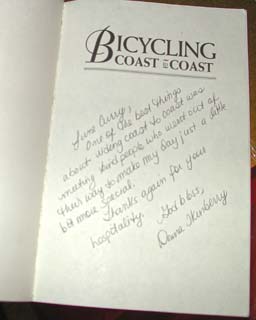 BICYCLING
COAST TO COAST
June Curry,
One of the best things
about riding coast to coast was
meeting kind people who went out of
their way to make my day just a little
bit more special.
Thanks again for your
hospitality.
God bless,
Donna